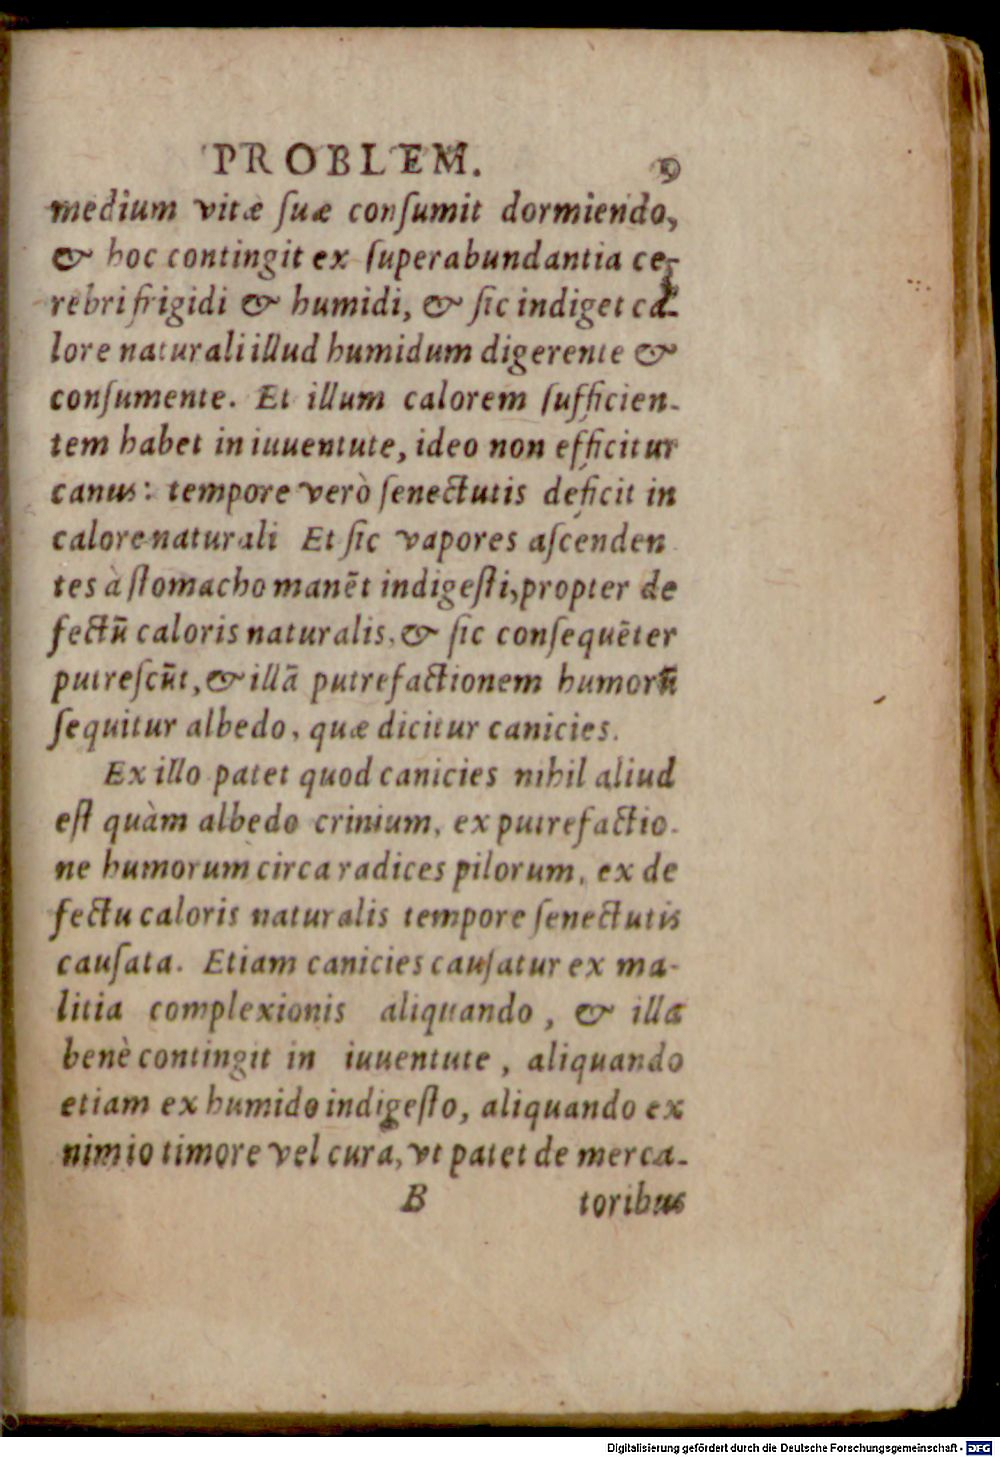 PROBLEM. 9
medium vitæ ſuæ conſumit dormiendo,
& hoc contingit ex ſuperabundantia ce-
rebri frigidi & humidi, & ſic indiget ca-
lore naturali illud humidum digerente &
conſumente. Et illum calorem ſufficien-
tem habet in iuuentute, ideo non efficitur
canus: tempore verò ſenectutis deficit in
calore naturali Et ſic vapores aſcenden
tes à ſtomacho manēt indigeſti, propter de
fectū caloris naturalis, & ſic conſequēter
putreſcūt, & illā putrefactionem humorū
ſequitur albedo, quæ dicitur canicies.
Ex illo patet quod canicies nihil aliud
eſt quàm albedo crinium, ex putrefactio-
ne humorum circa radices pilorum, ex de
fectu caloris naturalis tempore ſenectutis
cauſata. Etiam canicies cauſatur ex ma-
litia complexionis aliquando, & illa
benè contingit in iuuentute, aliquando
etiam ex humido indigeſto, aliquando ex
nimio timore vel cura, vt patet de merca-
B toribus
Digitalisierung gefördert durch die Deutsche Forschungsgemeinschaft - DFG